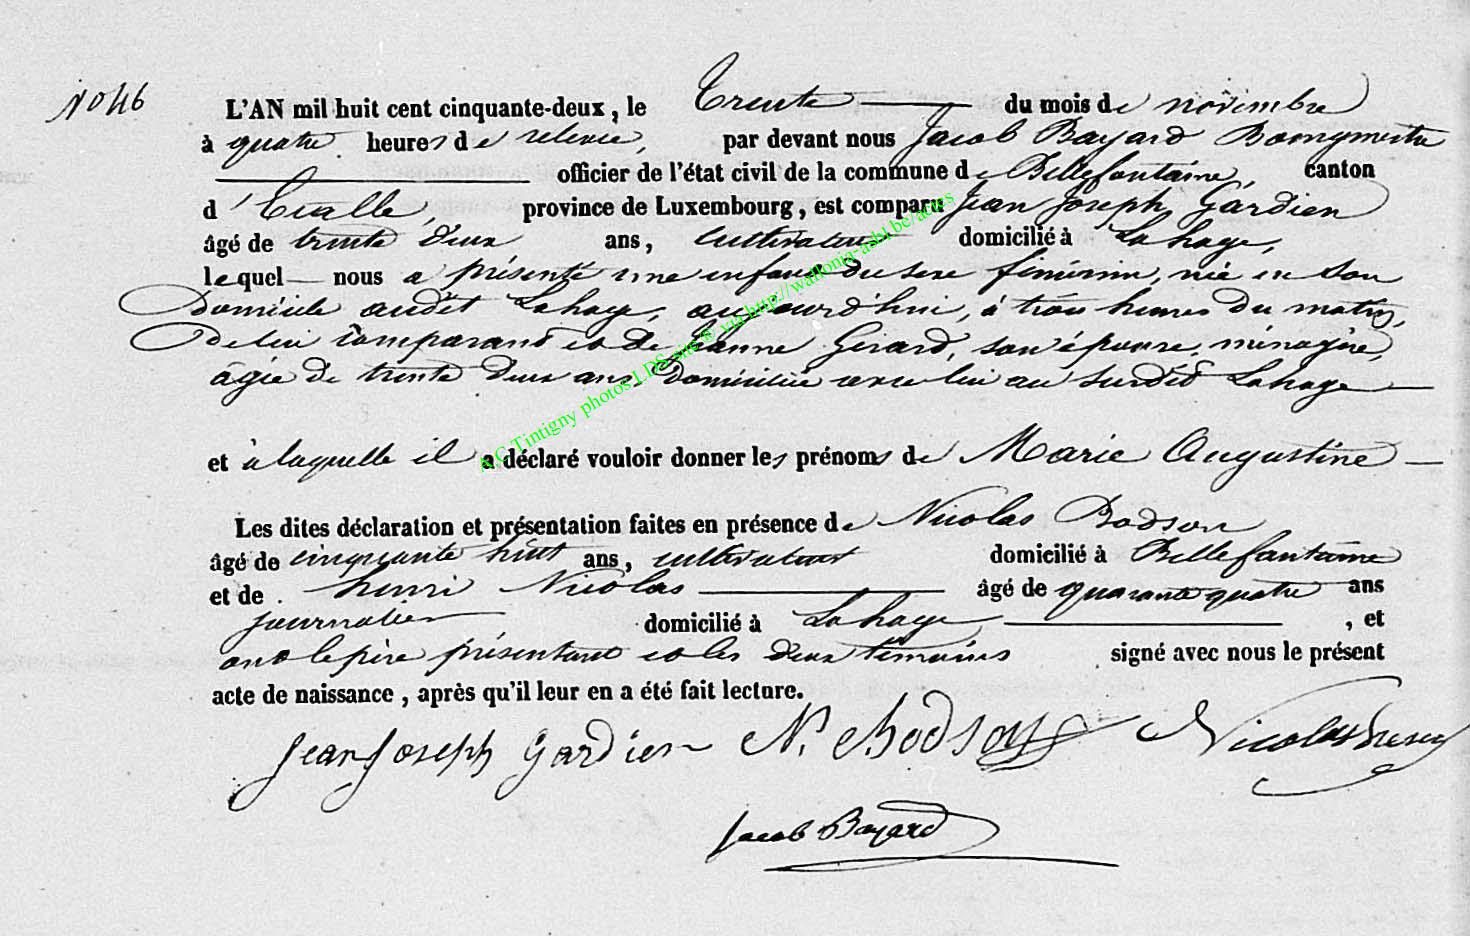 No 46
L'AN mil huit cent cinquante-deux, le Trente du mois de novembre
à quatre heures de relevée, par devant nous Jacob Bayard Bourgmestre
officier de l'état civil de la commune de Bellefontaine, canton
d'Etalle, province de Luxembourg, est comparu Jean Joseph Gardien
âgé de trente deux ans, cultivateur domicilié à Lahage,
lequel nous a présenté une enfant du sexe féminin, née en son
Domicile audit Lahage, aujourd'hui, à trois heures du matin,
De lui comparant et de Jeanne Gérard, son épouse, ménagère,
agée de trente deux ans, Domiciliée avec lui au susdit Lahage
et à laquelle il a déclaré vouloir donner les prénoms de Marie Augustine
Les dites déclaration et présentation faites en présence de Nicolas Bodson
âgé de cinquante huit ans, cultivateur domicilié à Bellefontaine
et de henri Nicolas âgé de quarante quatre ans
journalier domicilié à Lahage, et
ont le père présentant et les deux témoins signé avec nous le présent
acte de naissance, après qu'il leur en a été fait lecture.
Jean Joseph Gardien N. Bodson Nicolas
Jacob Bayard
A.C Tintigny photos LDS site & via http://wallonia-asbl.be/actes